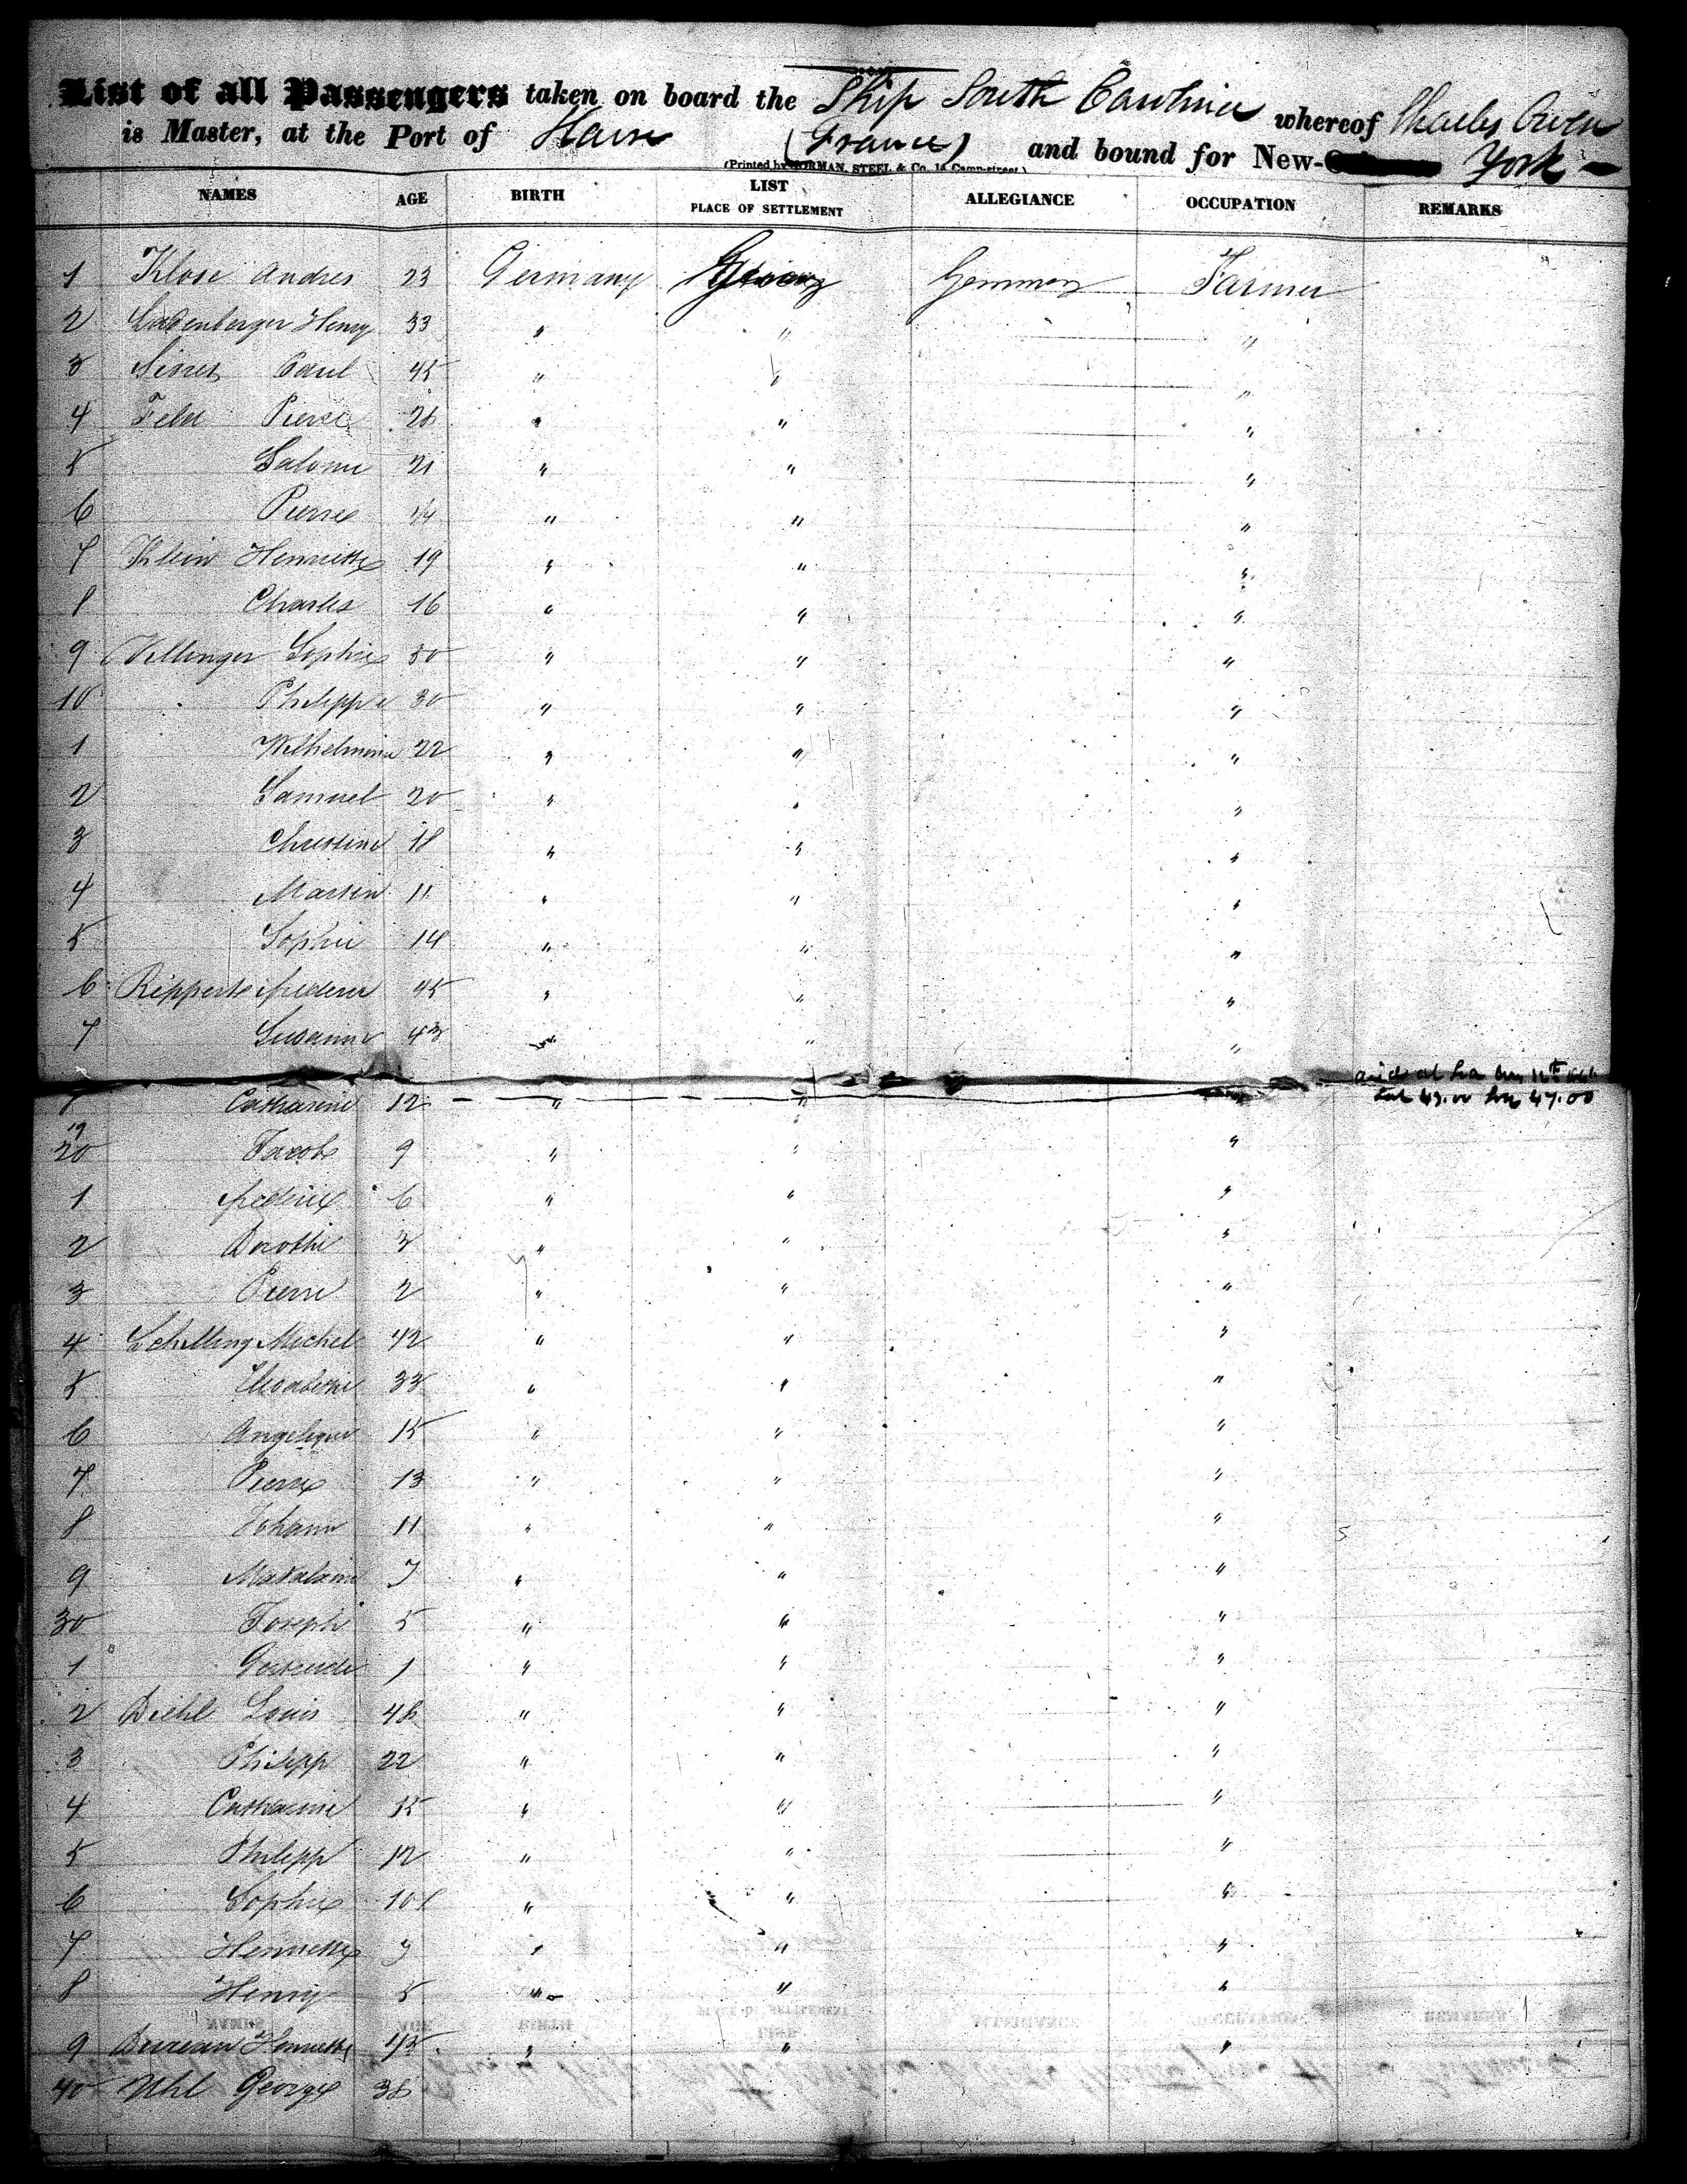 List of all Passengers taken on board the Ship South Carolina whereof Charles Owen
is Master, at the Port of Havre (France) and bound for New- York
(Printed by NORMAN, STEEL & Co. 14 Camp-street.)
NAMES AGE BIRTH LIST PLACE OF SETTLEMENT ALLEGIANCE OCCUPATION REMARKS
1 Klose Andres 23 Germany Farmer
2 Ladenberger Henry 33 " " "
3 Paul 45 " " "
4 Pierre 26 " " "
5 Salome 21 " " "
6 Pierre 14 " " "
7 Klein Henriette 19 " " "
8 Charles 16 " " "
9 Villinger Sophie 50 " " "
10 Philippe 30 " " "
1 Wilhelmina 22 " " "
2 Samuel 20 " " "
3 Christine 18 " " "
4 Martin 11 " " "
5 Sophie 14 " " "
6 Rippert 45 " " "
7 Susanne 43 " " "
8 Catharine 12 " "
19
20 Jacob 9 " " "
1 frederic 6 " " "
2 Dorothe 3 " " "
3 Pierre 2 " " "
4 Schilling Michel 42 " " "
5 33 " " "
6 Angelique 15 " " "
7 Pierre 13 " " "
8 Johann 11 " " "
9 7 " " "
30 Joseph 5 " " "
1 Gertrude 1 " " "
2 Diehl Louis 46 " " "
3 Philipp 22 " " "
4 Catharine 15 " " "
5 Philipp 12 " " "
6 Sophie 10 " " "
7 Henriette 7 " " "
8 Henry 5 " " "
9 Henriette 45 " " "
40 Uhl George 38